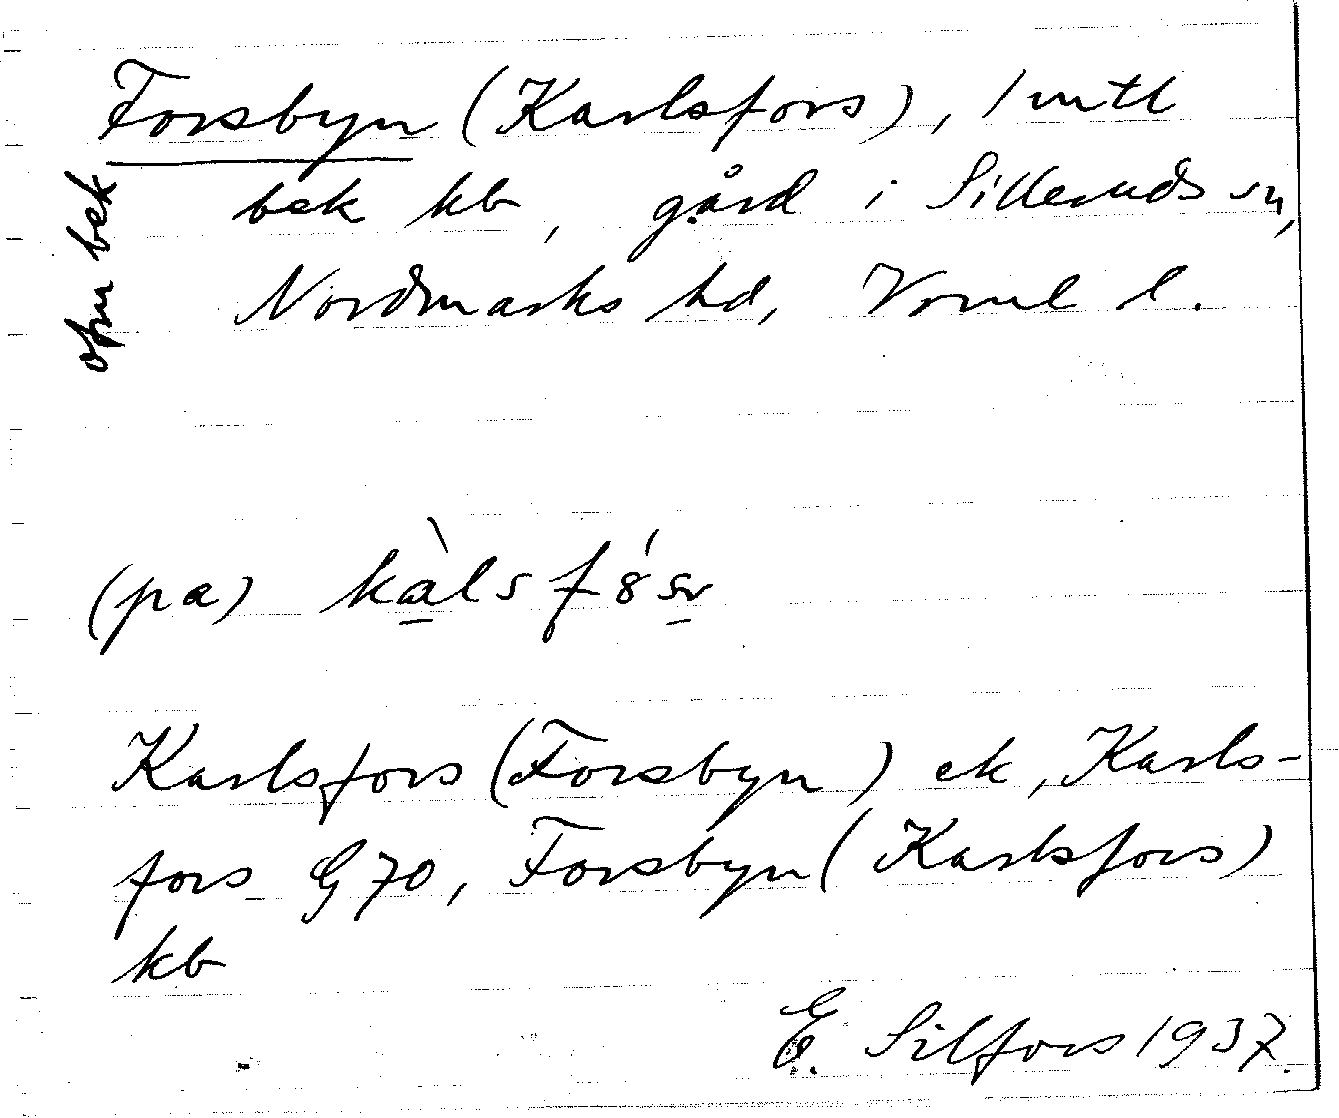 Forsbyn (Karlsfors), 1 mtl
ofm bek
bek kb, gård i Silleruds sn,
Nordmarks hd, Vrml l.
(pa) kàlsfó̤sv
Karlsfors (Forsbyn) ek, Karls-
fors G 70, Forsbyn (Karlsfors)
kb
E. Silfors 1937.